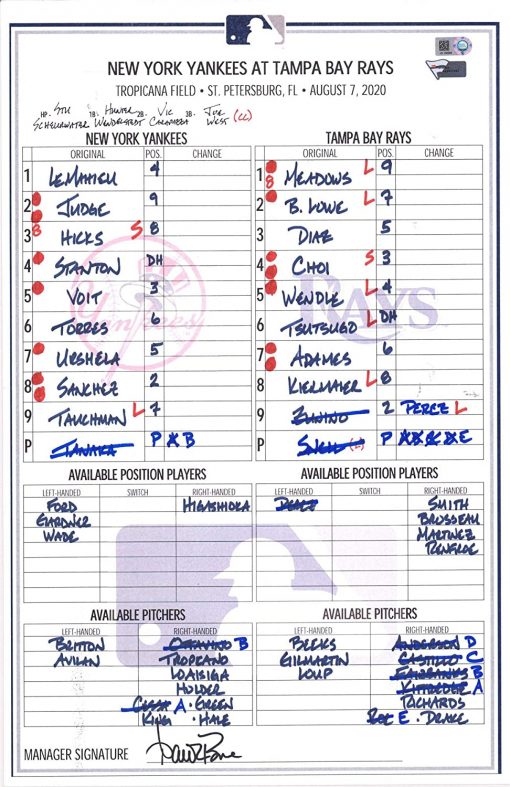 NEW YORK YANKEES AT TAMPA BAY RAYS
TROPICANA FIELD • ST. PETERSBURG, FL • AUGUST 7, 2020
HP: STU SCHEURWATER 1B: HUNTER WENDELSTEDT 2B: VIC CARAPAZZA 3B: JOE WEST (CC)
NEW YORK YANKEES
ORIGINAL POS. CHANGE
1 LEMAHIEU 4
2 JUDGE 9
3 8 HICKS S 8
4 STANTON DH
5 VOIT 3
6 TORRES 6
7 URSHELA 5
8 SANCHEZ 2
9 TAUCHMAN L 7
P TANAKA P A B
AVAILABLE POSITION PLAYERS
LEFT-HANDED SWITCH RIGHT-HANDED
FORD HIGASHIOKA
GARDNER
WADE
AVAILABLE PITCHERS
LEFT-HANDED RIGHT-HANDED
BRITTON OTTAVINO B
AVILAN TROPEANO
LOAISIGA
HOLDER
CESSA A • GREEN
KING • HALE
TAMPA BAY RAYS
ORIGINAL POS. CHANGE
1 8 MEADOWS L 9
2 B. LOWE L 7
3 DIAZ 5
4 CHOI S 3
5 WENDLE L 4
6 TSUTSUGO L DH
7 ADAMES 6
8 KIERMAIER L 8
9 ZUNINO 2 PEREZ L
P SNELL (L) P A B C D E
AVAILABLE POSITION PLAYERS
LEFT-HANDED SWITCH RIGHT-HANDED
PEREZ SMITH
BROSSEAU
MARTINEZ
RENFROE
AVAILABLE PITCHERS
LEFT-HANDED RIGHT-HANDED
BEEKS ANDERSON D
GILMARTIN CASTILLO C
LOUP FAIRBANKS B
KITTREDGE A
RICHARDS
ROE E • DRAKE
MANAGER SIGNATURE
Yankees
RAYS